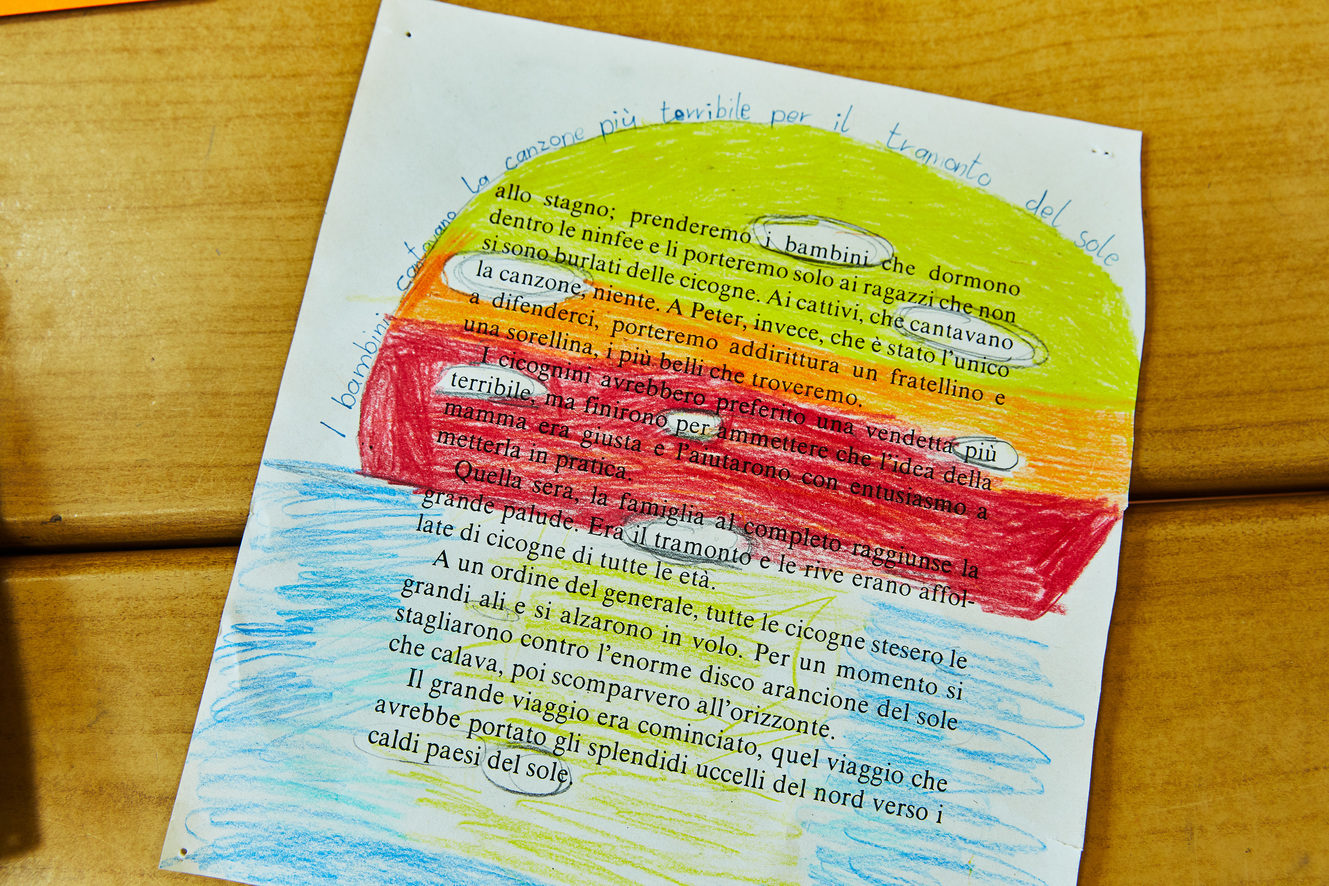 I bambini cantavano la canzone più terribile per il tramonto del sole
allo stagno; prenderemo i bambini che dormono
dentro le ninfee e li porteremo solo ai ragazzi che non
si sono burlati delle cicogne. Ai cattivi, che cantavano
la canzone, niente. A Peter, invece, che è stato l'unico
a difenderci, porteremo addirittura un fratellino e
una sorellina, i più belli che troveremo.
I cicognini avrebbero preferito una vendetta più
terribile, ma finirono per ammettere che l'idea della
mamma era giusta e l'aiutarono con entusiasmo a
metterla in pratica.
Quella sera, la famiglia al completo raggiunse la
grande palude. Era il tramonto e le rive erano affol-
late di cicogne di tutte le età.
A un ordine del generale, tutte le cicogne stesero le
grandi ali e si alzarono in volo. Per un momento si
stagliarono contro l'enorme disco arancione del sole
che calava, poi scomparvero all'orizzonte.
Il grande viaggio era cominciato, quel viaggio che
avrebbe portato gli splendidi uccelli del nord verso i
caldi paesi del sole.